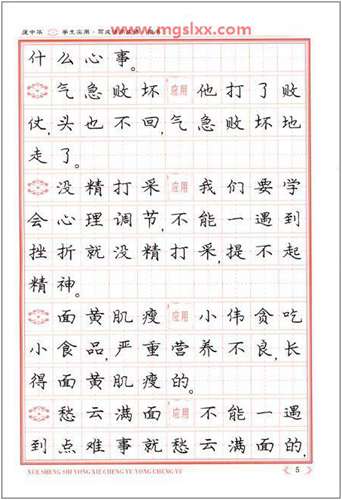 www.mgslxx.com
庞中华
学生实用·写成语
什么心事。
气急败坏 应用 他打了败
仗,头也不回,气急败坏地
走了。
没精打采 应用 我们要学
会心理调节,不能一遇到
挫折就没精打采,提不起
精神。
面黄肌瘦 应用 小伟贪吃
小食品,严重营养不良,长
得面黄肌瘦的。
愁云满面 应用 不能一遇
到点难事就愁云满面的,
XUE SHENG SHI YONG XIE CHENG YU YONG CHENG YU
5